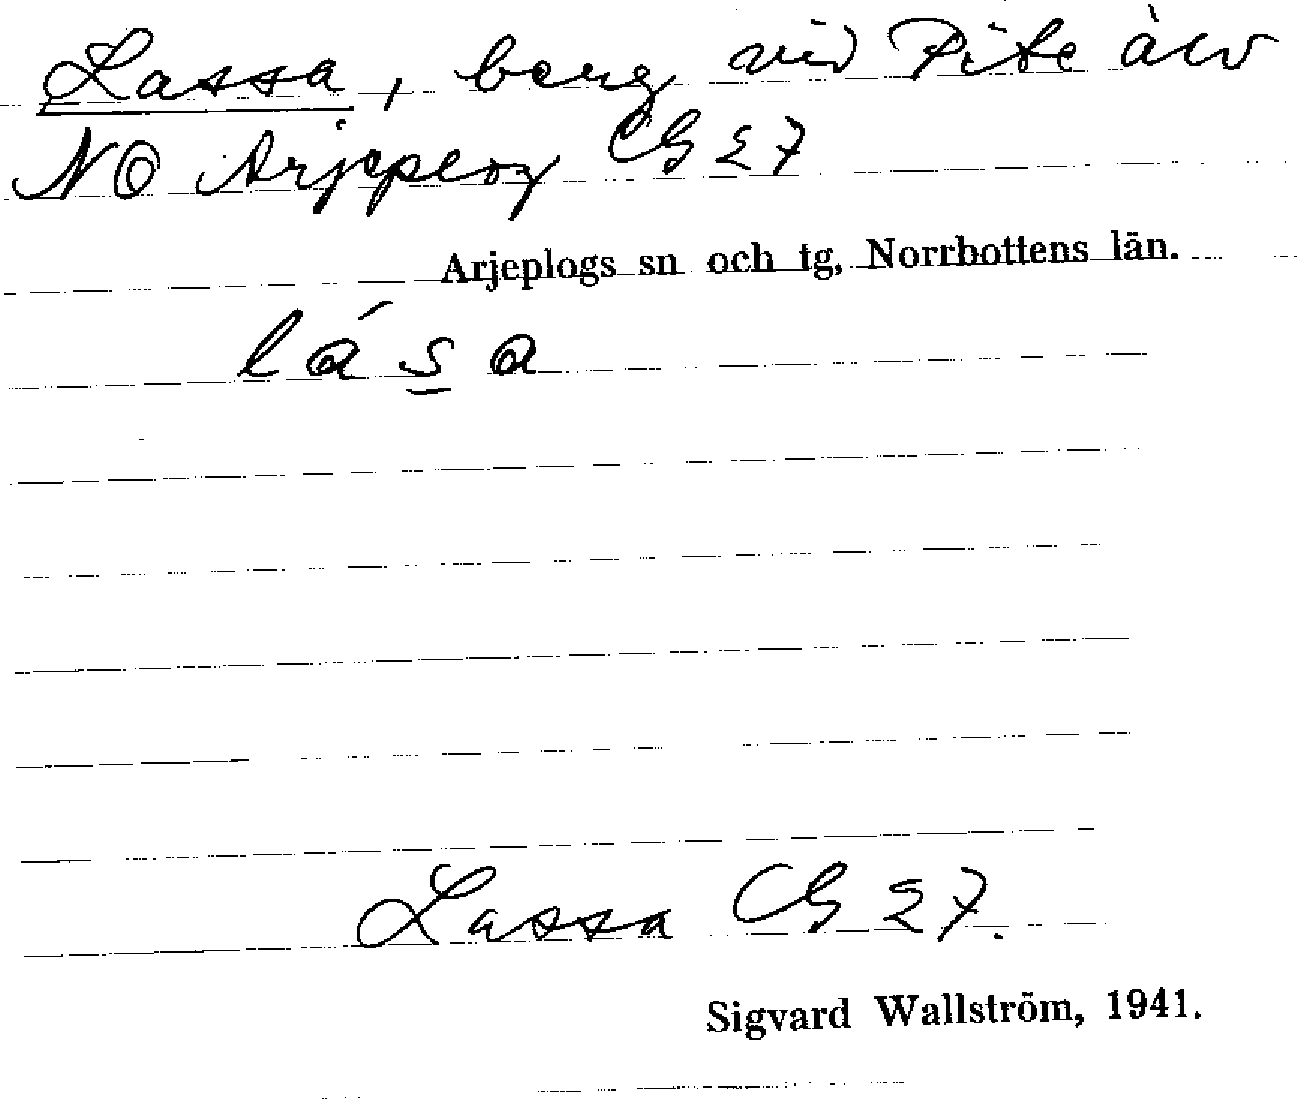 Lassa, berg vid Pite älv
NO Arjeplog CG 27
Arjeplogs sn och tg, Norrbottens län.
lása
Lassa CG 27.
Sigvard Wallström, 1941.